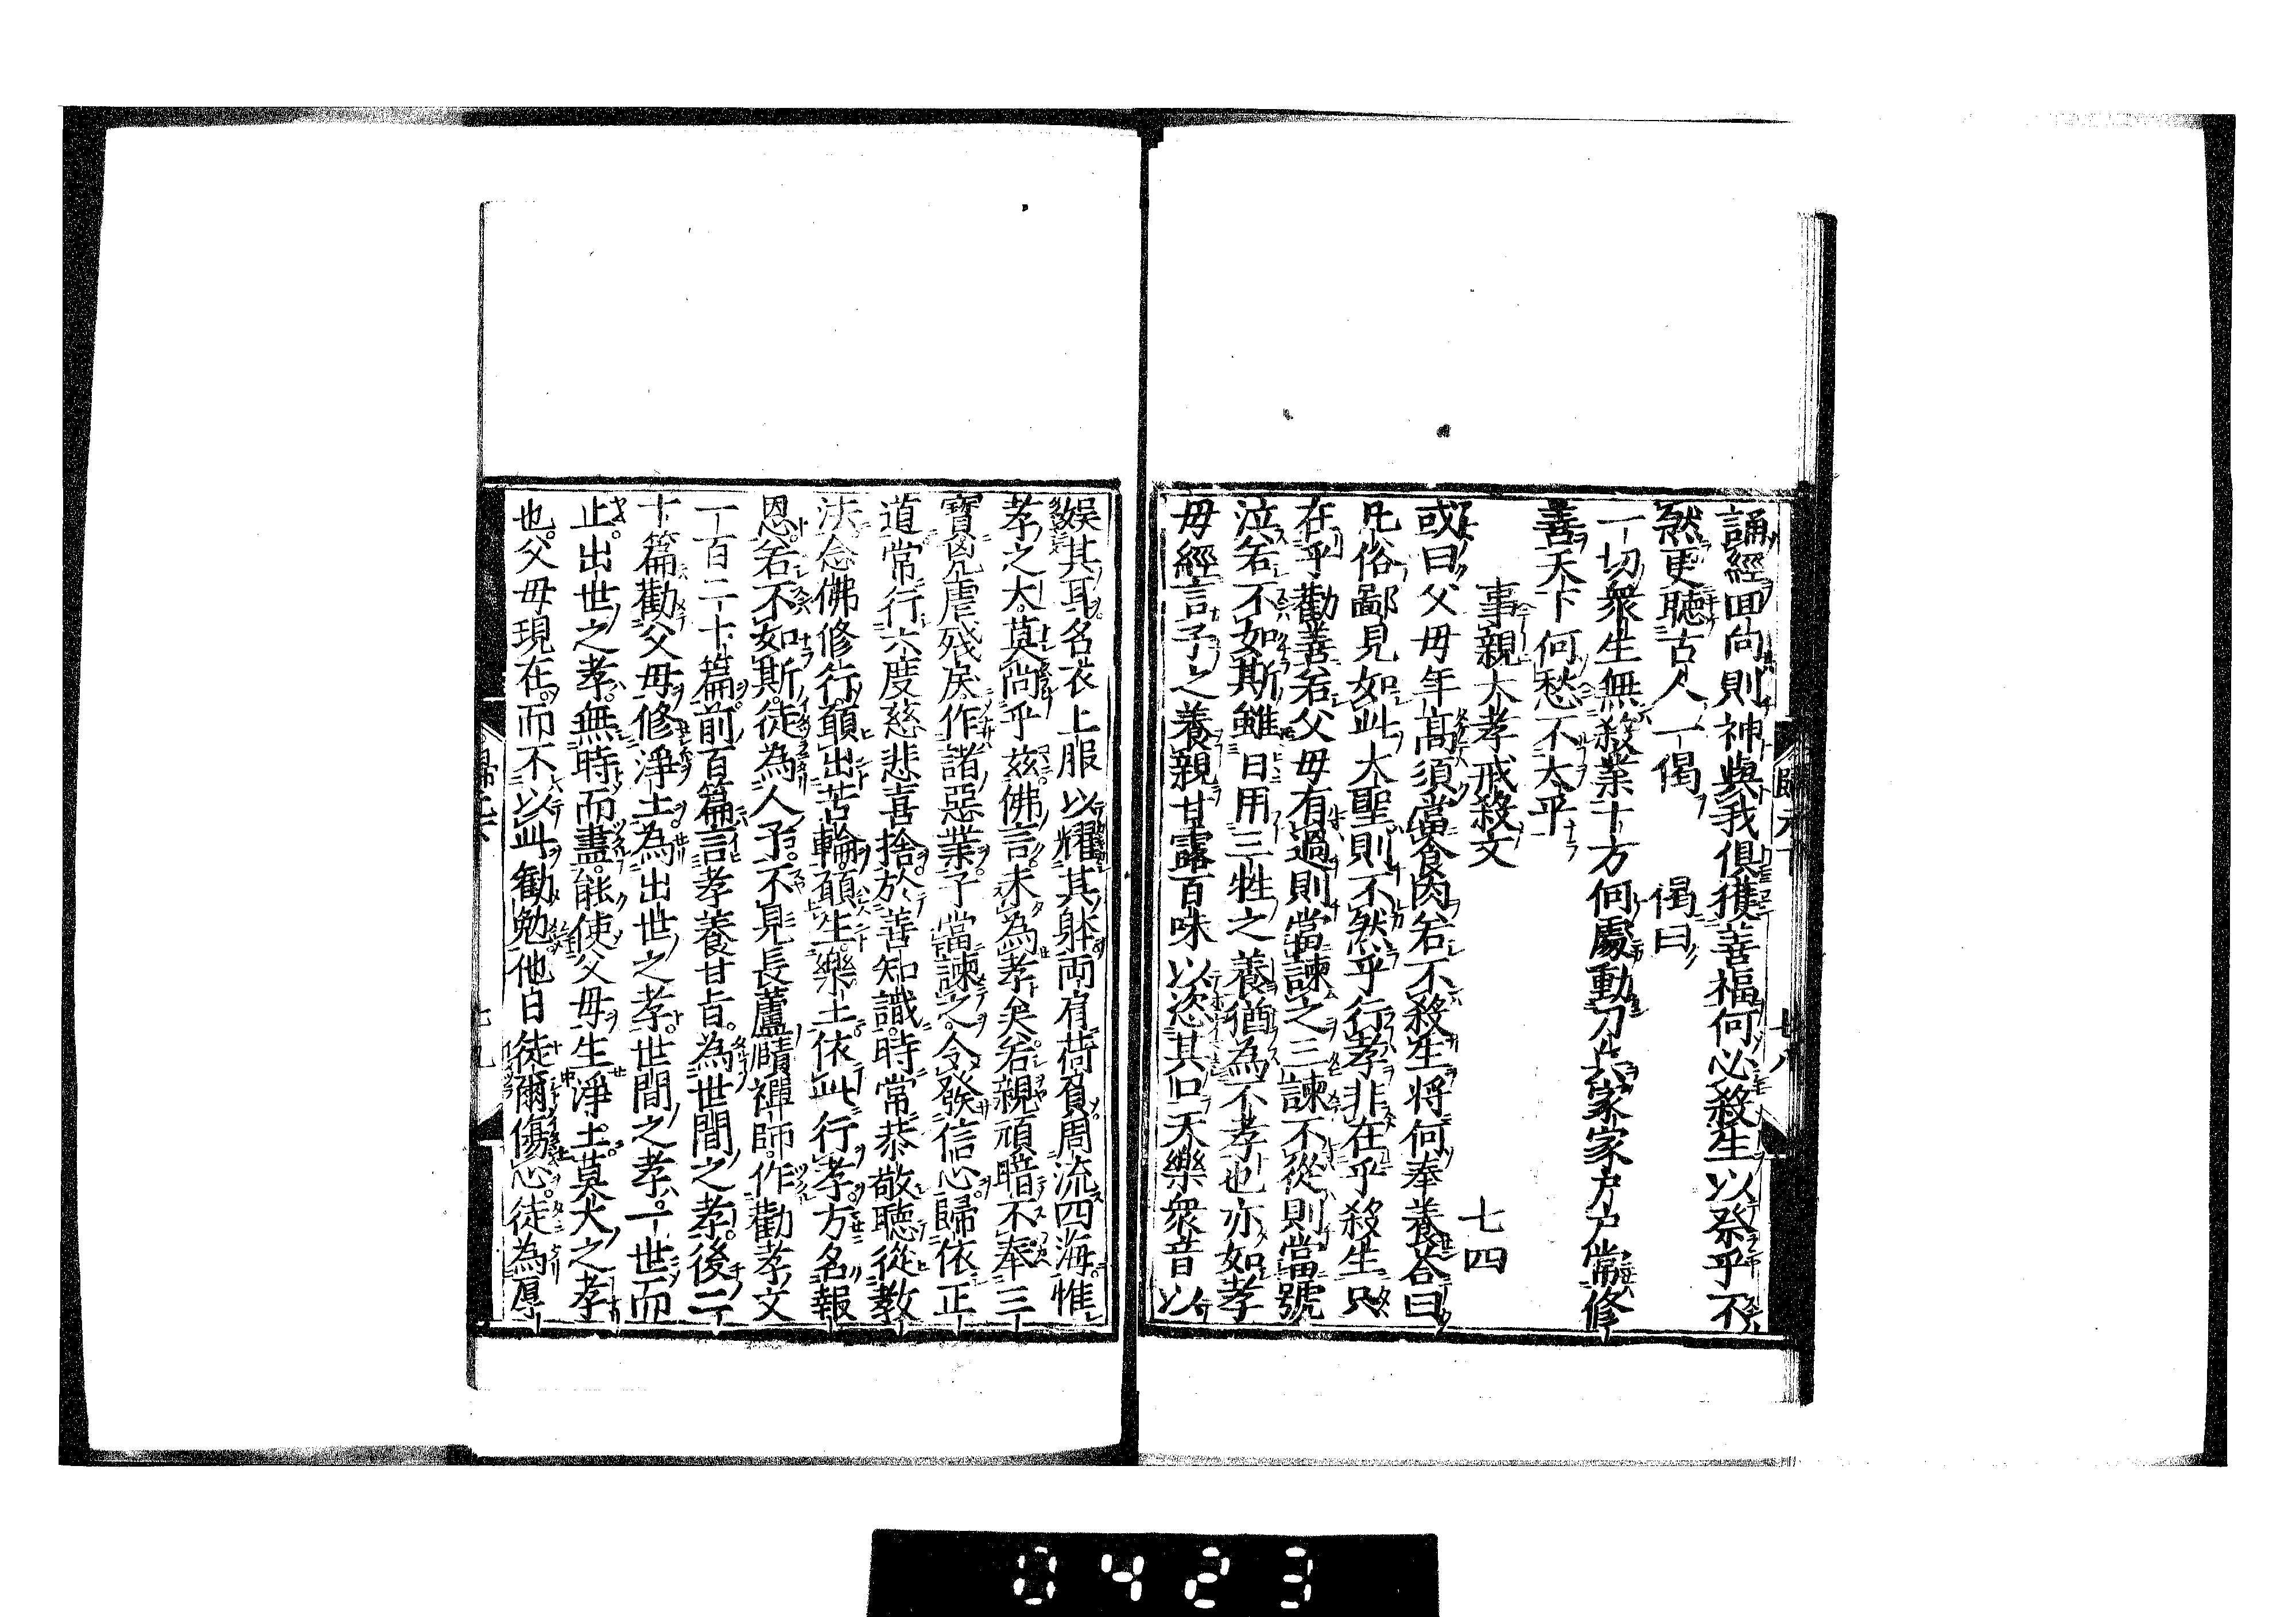 誦經回向則神與我俱獲善福何必殺生以祭乎不
然更聽古人一偈　偈曰
一切衆生無殺業十方何處動刀兵家家戸戸常修
善天下何愁不太平
事親大孝戒殺文　七四
或曰父母年髙須當食肉若不殺生将何奉養荅曰
凡俗鄙見如此大聖則不然乎行孝非在乎殺生只
在乎勸善若父母有過則當諫之三諫不從則當號
泣若不如斯雖日用三牲之養猶為不孝也亦如孝
母經言子之養親甘露百味以恣其口天樂衆音以
娯其耳名衣上服以耀其躰両肩荷負周流四海惟
孝之大莫尚乎兹佛言未為孝矣若親頑暗不奉三
寶兇虐殘戾作諸惡業子當諫之令發信心歸依正
道常行六度慈悲喜捨於善知識時常恭敬聽從教
法念佛修行願出苦輪願生樂土依此行孝方名報
恩若不如斯徒為人子不見長蘆賾禪師作勸孝文
一百二十篇前百篇言孝養甘旨為世間之孝後二
十篇勸父母修淨土為出世之孝世間之孝一世而
止出世之孝無時而盡能使父母生淨土莫大之孝
也父母現在而不以此勸勉他日徒爾傷心徒為厚
0423